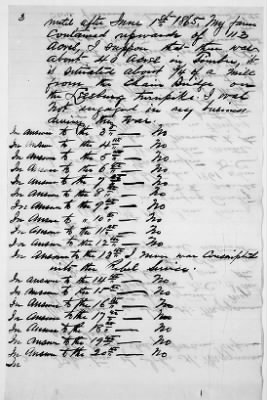 3
until after June 1st 1865, My farm
Contained upwards of 112
Acres, I suppose that there was
about 40 Acres in Timber, it
is situated about ¾ of a mile
from the Chain Bridge on
the Leesburg Turnpike. I was
not engaged in any business
during the War.
In Answer to the 3rd — No
In Answer to the 4th — No
In Answer to the 5th — No
In Answer to the 6th — No
In Answer to the 7th — No
In Answer to the 8th — No
In Answer to the 9th — No
In Answer " 10th — No
In Answer to the 11th — No
In Answer to the 12th — No
In Answer to the 13th I never was Conscripted
into the Rebel service.
In answer to the 14th — No
In Answer to the 15th — No
In Answer to the 16th — No
In Answer to the 17th — No
In Answer to the 18th — No
In Answer to the 19th — No
In Answer to the 20th — No
In